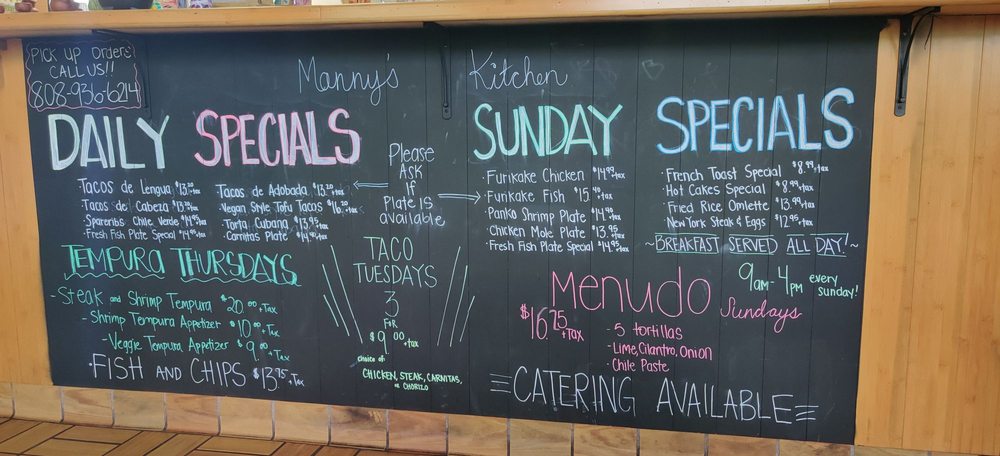 Pick up orders
CALL US!!
808-936-6214
Manny's Kitchen
DAILY SPECIALS
·Tacos de Lengua $13.20+tax
·Tacos de Cabeza $13.20+tax
·Spareribs Chile Verde $14.95+tax
·Fresh Fish Plate Special $14.95+tax
Tacos de Adobada $13.20+tax
·Vegan Style Tofu Tacos $16.20+tax
·Torta Cubana $13.95+tax
·Carnitas Plate $14.95+tax
Please
ASK
IF
Plate is
available
SUNDAY SPECIALS
·Furikake Chicken $14.95+tax
·Furikake Fish $15.40+tax
·Panko Shrimp Plate $14.95+tax
·Chicken Mole Plate $13.95+tax
·Fresh Fish Plate Special $14.95+tax
·French Toast Special $8.99+tax
·Hot Cakes Special $8.99+tax
·Fried Rice Omlette $13.99+tax
·New York Steak & Eggs $12.95+tax
~BREAKFAST SERVED ALL DAY!~
9am-4pm every
sunday!
TEMPURA THURSDAYS
-Steak and Shrimp Tempura $20.00+Tax
-Shrimp Tempura Appetizer $10.00+Tax
-Veggie Tempura Appetizer $9.00+Tax
·FISH AND CHIPS $13.95+Tax
TACO
TUESDAYS
3
FOR
$9.00+tax
choice of
CHICKEN, STEAK, CARNITAS,
or CHORIZO
Menudo Sundays
$16.75+Tax
- 5 tortillas
- Lime, Cilantro, Onion
- Chile Paste
CATERING AVAILABLE